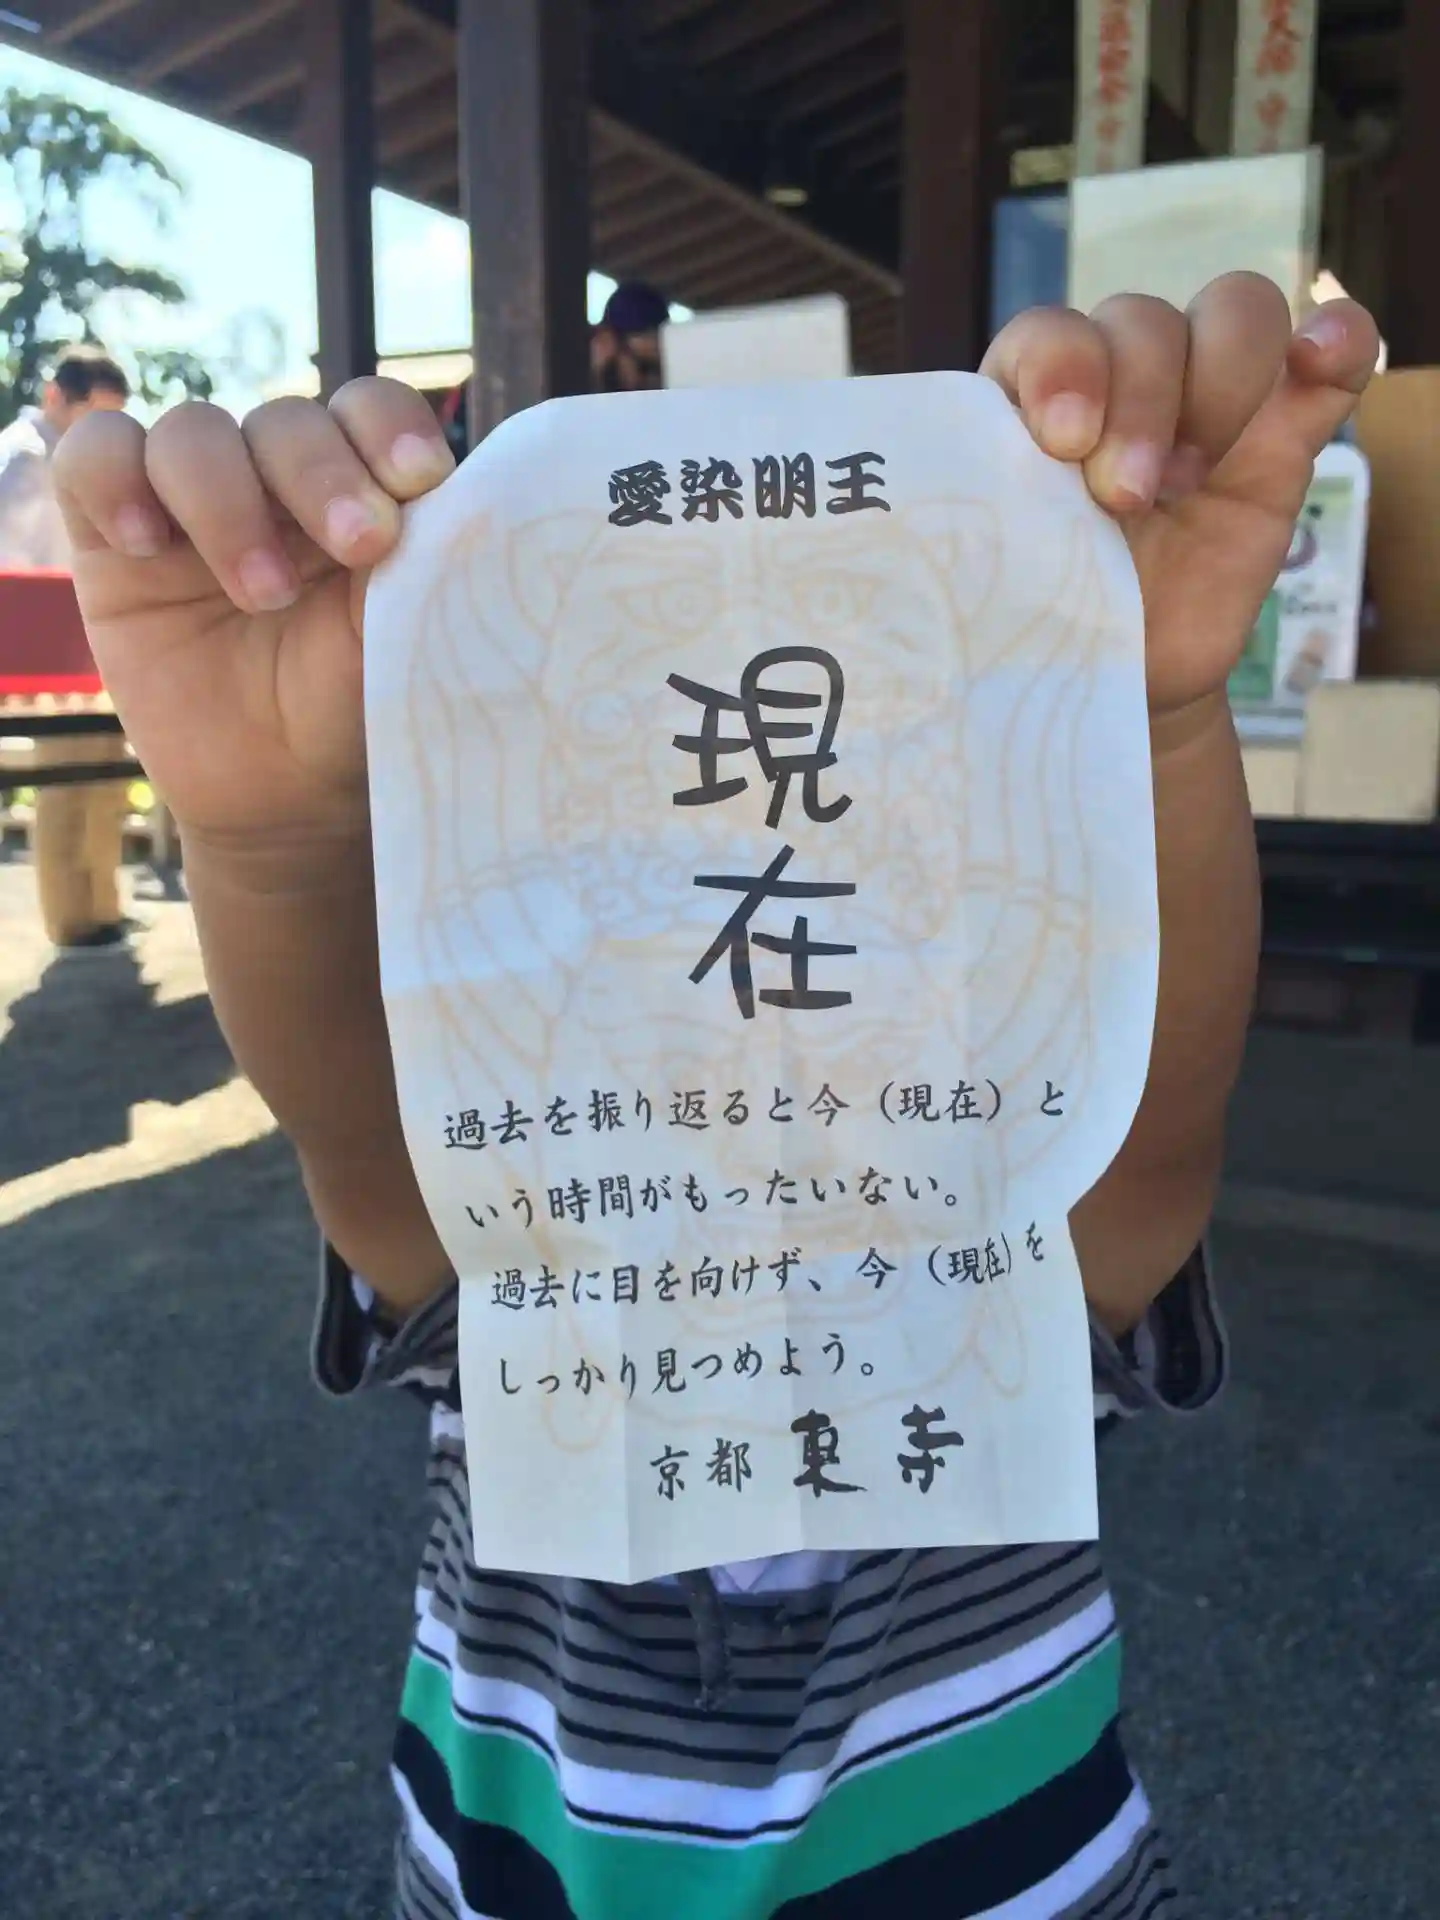 愛染明王
現在
過去を振り返ると今（現在）と
いう時間がもったいない。
過去に目を向けず、今（現在）を
しっかり見つめよう。
京都 東寺